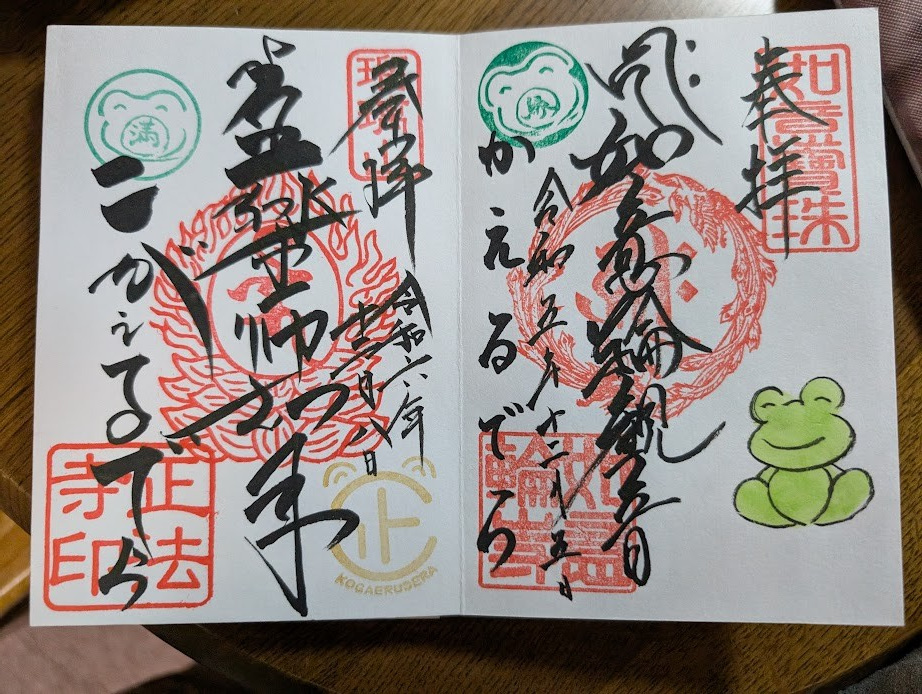 奉拝
如意寳珠
如意輪観世音
令和五年十二月五日
かえるでら
奉拝
令和六年
十二月八日
薬師
こがえるでら
満
正法寺印
止
KOGAERUDERA